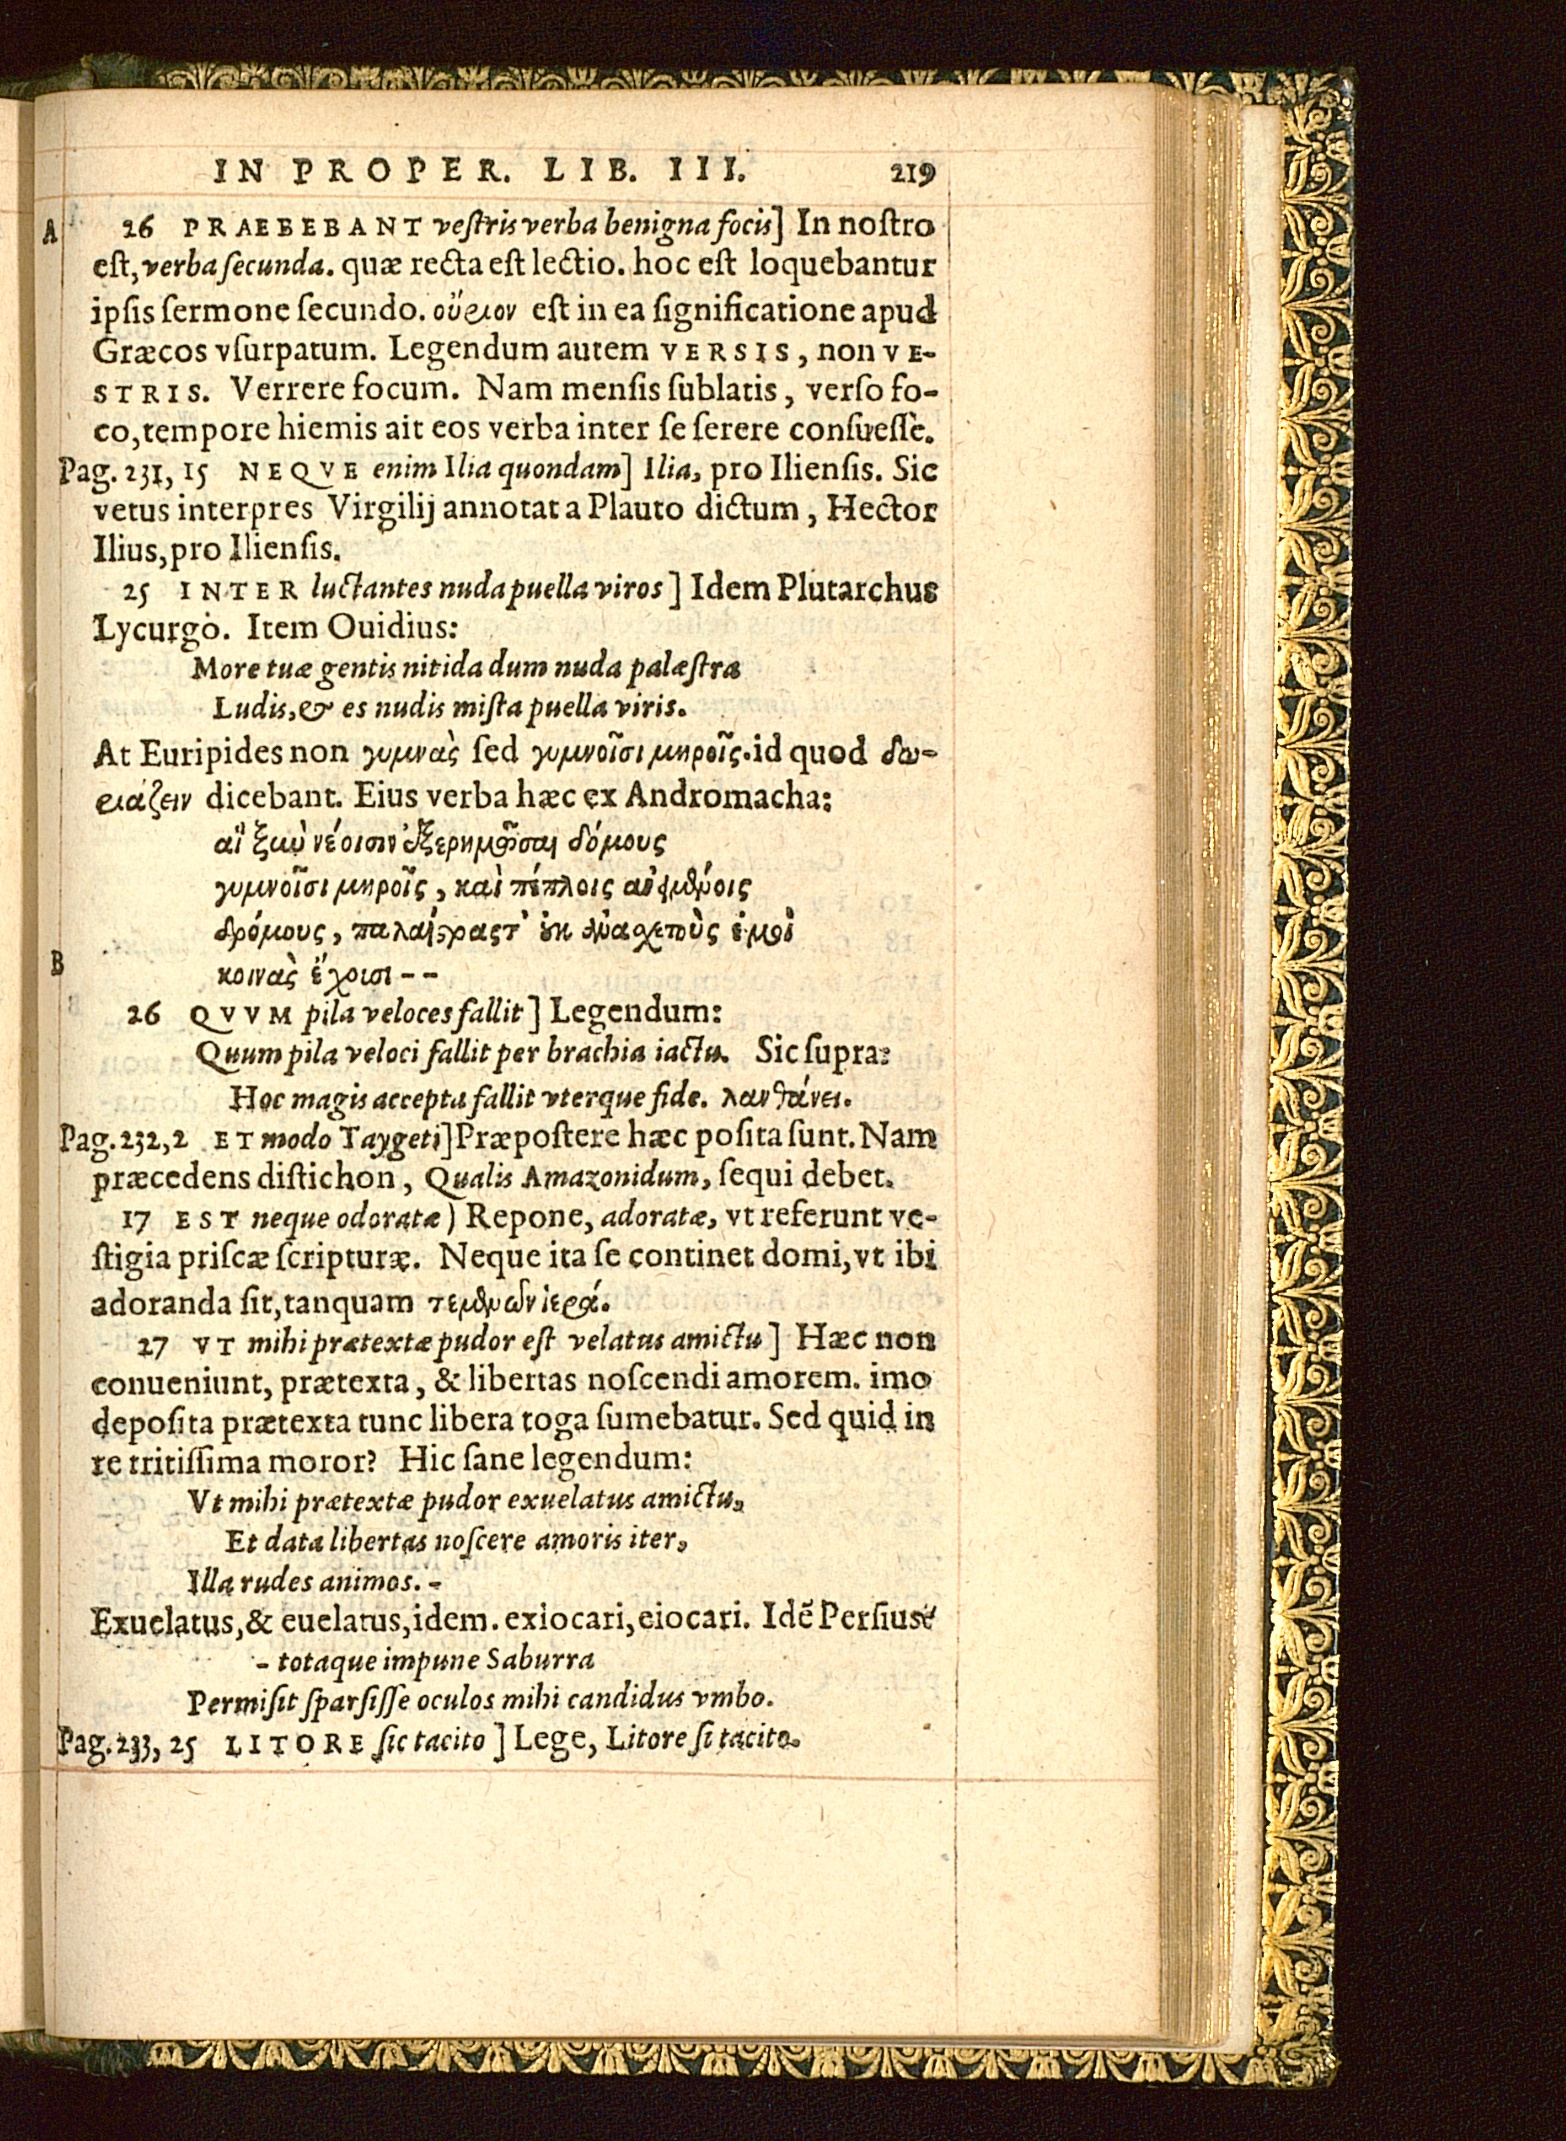 IN PROPER. LIB. III. 219
A 26 PRAEBEBANT veſtris verba benigna focis] In noſtro
eſt, verba ſecunda. quæ recta eſt lectio. hoc eſt loquebantur
ipſis ſermone ſecundo. οὔριον eſt in ea ſignificatione apud
Græcos vſurpatum. Legendum autem VERSIS, non VE-
STRIS. Verrere focum. Nam menſis ſublatis, verſo fo-
co, tempore hiemis ait eos verba inter ſe ſerere conſueſſe.
Pag. 231, 15 NEQVE enim Ilia quondam] Ilia, pro Ilienſis. Sic
vetus interpres Virgilij annotat a Plauto dictum, Hector
Ilius, pro Ilienſis.
25 INTER luctantes nuda puella viros] Idem Plutarchus
Lycurgo. Item Ouidius:
More tuæ gentis nitida dum nuda palæſtra
Ludis, & es nudis miſta puella viris.
At Euripides non γυμνὰς ſed γυμνοῖσι μηροῖς. id quod δω-
ριάζειν dicebant. Eius verba hæc ex Andromacha:
αἳ ξὺν νέοισιν ἐξερημοῦσαι δόμους
γυμνοῖσι μηροῖς, καὶ πέπλοις ἀνειμένοις
δρόμους, παλαίστρας τ' οὐκ ἀναχετοὺς ἐμοὶ
B κοινὰς ἔχουσι--
26 QVVM pila veloces fallit] Legendum:
Quum pila veloci fallit per brachia iactu. Sic ſupra:
Hoc magis accepta fallit vterque fide. λανθάνει.
Pag. 232, 2 ET modo Taygeti] Præpoſtere hæc poſita ſunt. Nam
præcedens diſtichon, Qualis Amazonidum, ſequi debet.
17 EST neque odoratæ) Repone, adoratæ, vt referunt ve-
ſtigia priſcæ ſcripturæ. Neque ita ſe continet domi, vt ibi
adoranda ſit, tanquam τεμενῶν ἱερά.
27 VT mihi prætextæ pudor eſt velatus amictu] Hæc non
conueniunt, prætexta, & libertas noſcendi amorem. imo
depoſita prætexta tunc libera toga ſumebatur. Sed quid in
re tritiſſima moror? Hic ſane legendum:
Vt mihi prætextæ pudor exuelatus amictu,
Et data libertas noſcere amoris iter,
Illa rudes animos.-
Exuelatus, & euelatus, idem. exiocari, eiocari. Idẽ Perſius:
- totaque impune Saburra
Permiſit ſparſiſſe oculos mihi candidus vmbo.
Pag. 233, 25 LITORE ſic tacito] Lege, Litore ſi tacito.